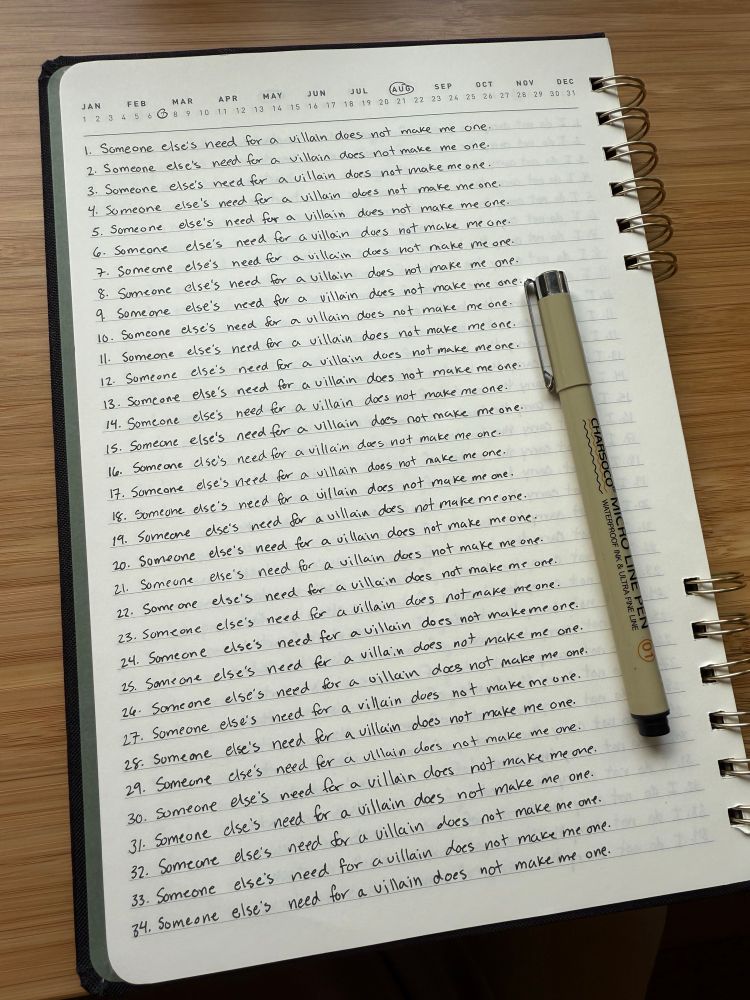 JAN FEB MAR APR MAY JUN JUL AUG SEP OCT NOV DEC
1 2 3 4 5 6 7 8 9 10 11 12 13 14 15 16 17 18 19 20 21 22 23 24 25 26 27 28 29 30 31
1. Someone else's need for a villain does not make me one.
2. Someone else's need for a villain does not make me one.
3. Someone else's need for a villain does not make me one.
4. Someone else's need for a villain does not make me one.
5. Someone else's need for a villain does not make me one.
6. Someone else's need for a villain does not make me one.
7. Someone else's need for a villain does not make me one.
8. Someone else's need for a villain does not make me one.
9. Someone else's need for a villain does not make me one.
10. Someone else's need for a villain does not make me one.
11. Someone else's need for a villain does not make me one.
12. Someone else's need for a villain does not make me one.
13. Someone else's need for a villain does not make me one.
14. Someone else's need for a villain does not make me one.
15. Someone else's need for a villain does not make me one.
16. Someone else's need for a villain does not make me one.
17. Someone else's need for a villain does not make me one.
18. Someone else's need for a villain does not make me one.
19. Someone else's need for a villain does not make me one.
20. Someone else's need for a villain does not make me one.
21. Someone else's need for a villain does not make me one.
22. Someone else's need for a villain does not make me one.
23. Someone else's need for a villain does not make me one.
24. Someone else's need for a villain does not make me one.
25. Someone else's need for a villain does not make me one.
26. Someone else's need for a villain does not make me one.
27. Someone else's need for a villain does not make me one.
28. Someone else's need for a villain does not make me one.
29. Someone else's need for a villain does not make me one.
30. Someone else's need for a villain does not make me one.
31. Someone else's need for a villain does not make me one.
32. Someone else's need for a villain does not make me one.
33. Someone else's need for a villain does not make me one.
34. Someone else's need for a villain does not make me one.
CHARSOCO MICRO LINE PEN 01
WATERPROOF INK & ULTRA FINE LINE